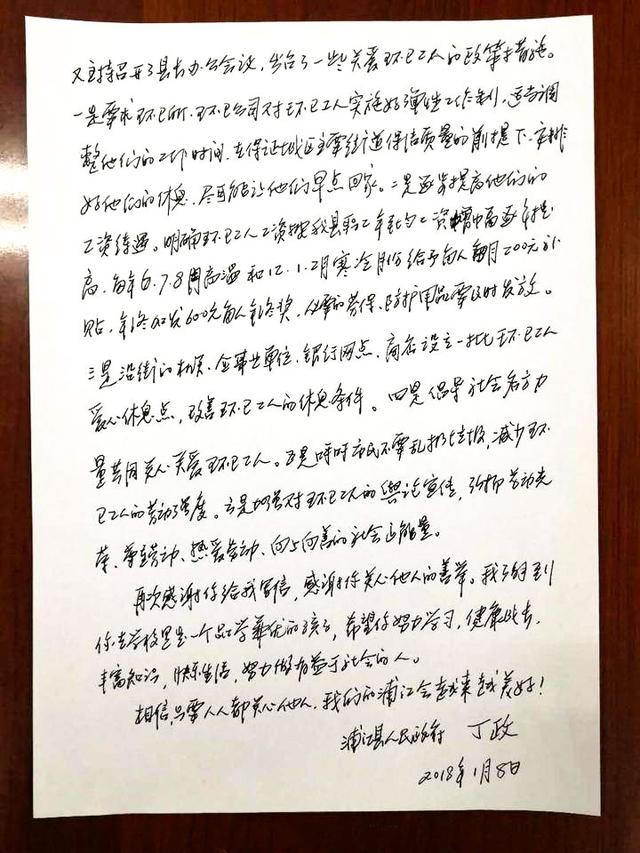 又主持召开了县长办公会议，出台了一些关爱环卫工人的政策措施。
一是要求环卫所、环卫公司对环卫工人实施好弹性工作制，适当调
整他们的工作时间，在保证城区主要街道保洁质量的前提下，安排
好他们的休息，尽可能让他们早点回家。二是逐步提高他们的
工资待遇。明确环卫工人工资按我县职工年平均工资增幅逐年提
高，每年6.7.8月高温和12.1.2月寒冷月份给予每人每月200元补
贴，年终加发600元每人年终奖，必要的劳保、防护用品要及时发放。
三是沿街的机关、企事业单位、银行网点、商店设立一批环卫工人
爱心休息点，改善环卫工人的休息条件。四是倡导社会各方力
量共同关心关爱环卫工人。五是呼吁市民不要乱扔垃圾，减少环
卫工人的劳动强度。六是加强对环卫工人的舆论宣传，弘扬劳动光
荣、尊重劳动、热爱劳动、向上向善的社会正能量。
再次感谢你给我写信，感谢你关心他人的善举。我了解到
你在学校里是一个品学兼优的孩子，希望你努力学习，健康成长，
丰富知识，快乐生活，努力做有益于社会的人。
相信，只要人人都关心他人，我们的浦江会越来越美好！
浦江县人民政府 丁政
2018年1月8日